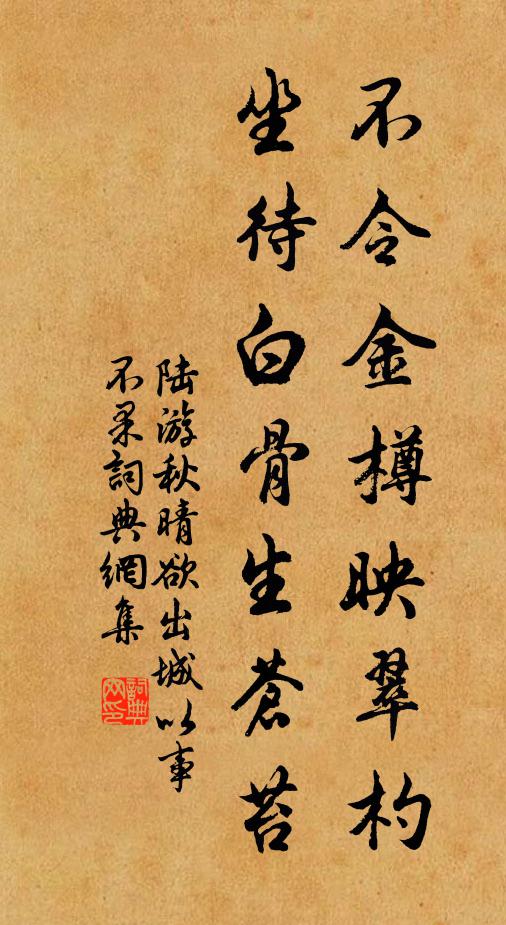 不令金樽映翠杓
坐待白骨生蒼苔
陆游秋晴欲出城以事
不果詞典網集
詞典網印